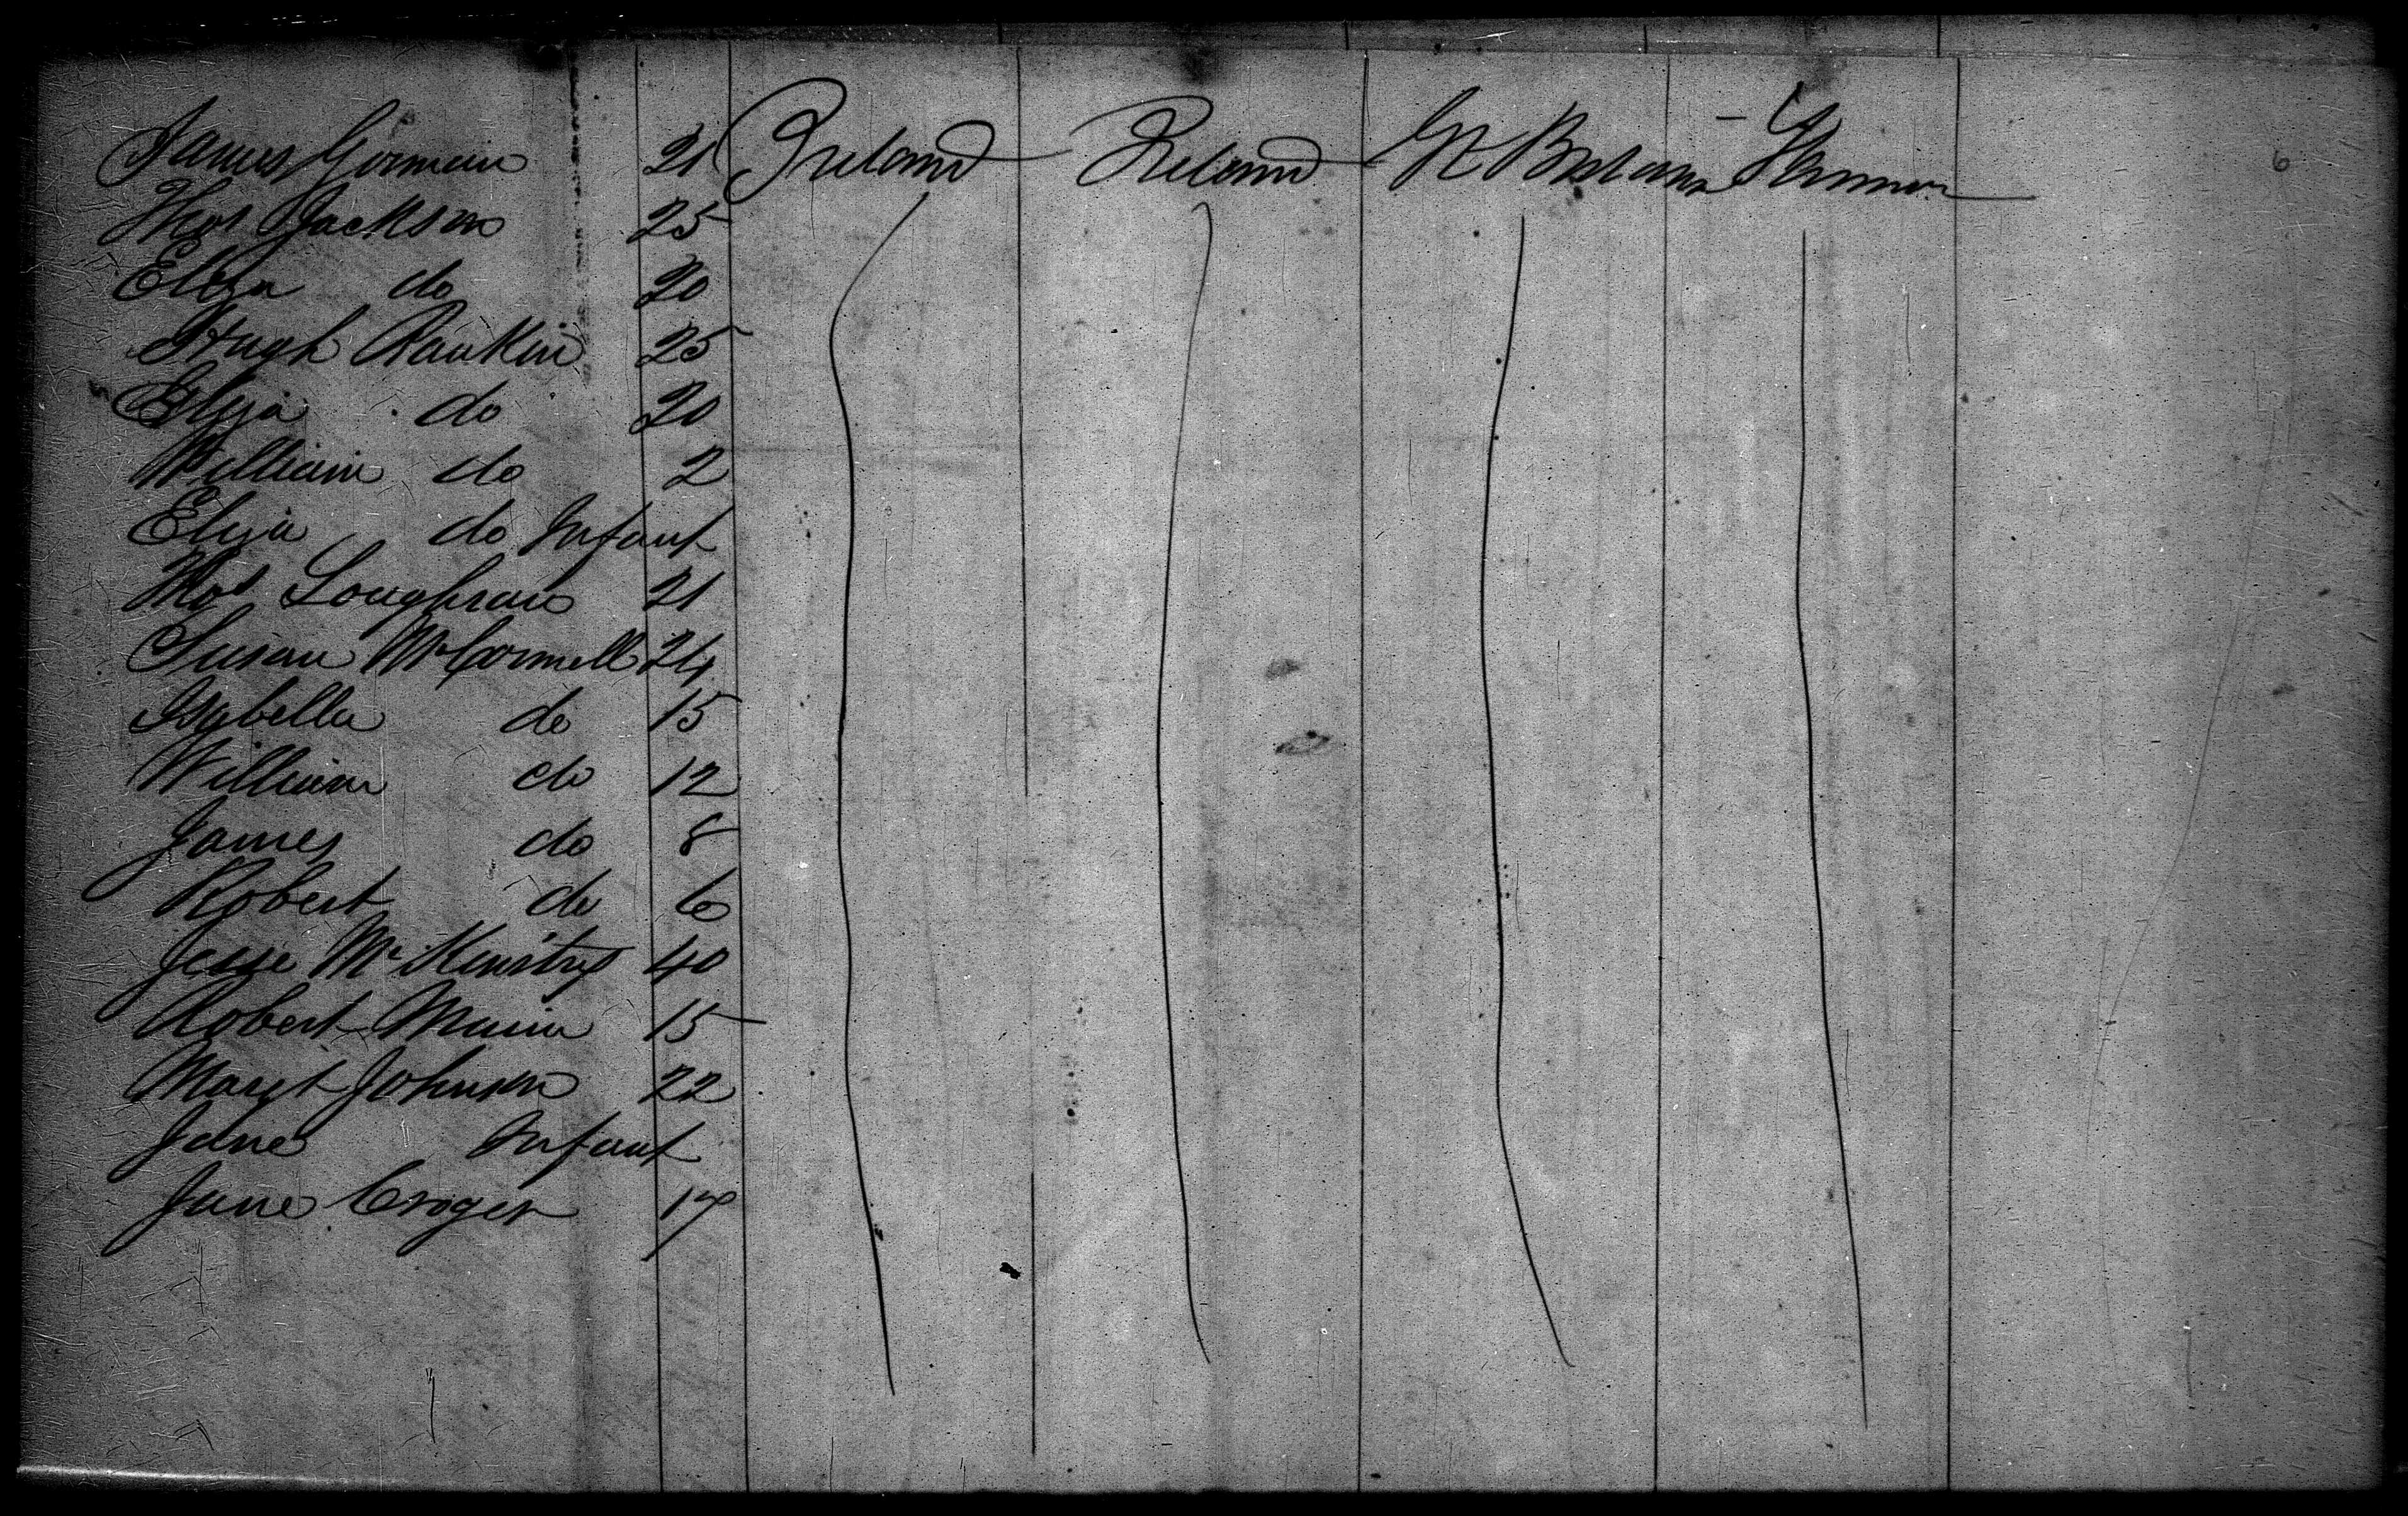 James Gorman 21 Ireland Ireland Gt Britain - Farmer
Thos Jackson 25
Eliza do 20
Hugh Rankin 25
Eliza do 20
William do 2
Eliza do Infant
Thos Loughran 21
Susan McConnell 24
Isabella do 15
William do 12
James do 8
Robert do 6
Jesse Mc Kinstry 40
Robert 15
Margt Johnson 22
Jane Infant
Jane Croger 17
6